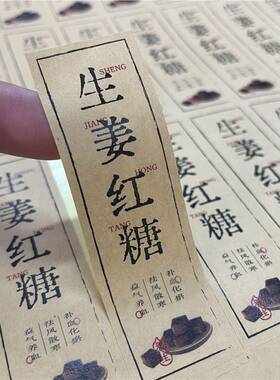 生姜红糖
SHENG
JIANG
HONG
TANG
补血化瘀
祛风散寒
益气养血